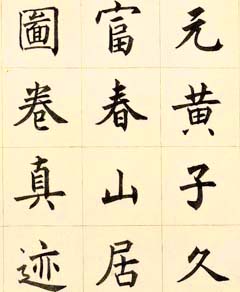 元黄子久
富春山居
圖卷真迹